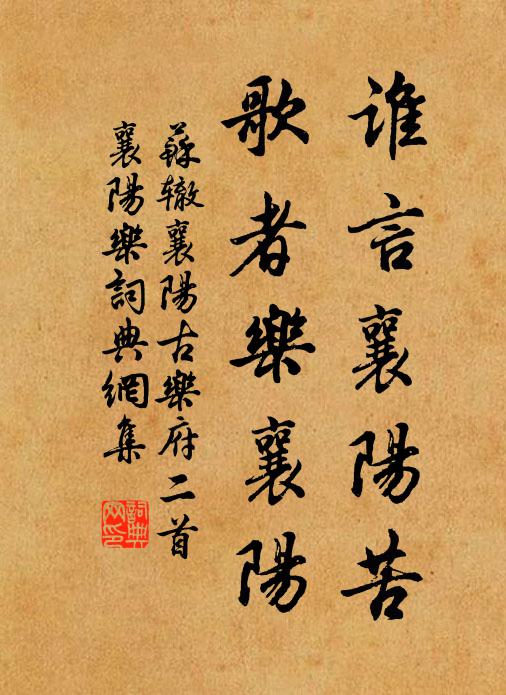 谁言襄陽苦
歌者樂襄陽
蘇辙襄陽古樂府二首
襄陽樂詞典網集
詞典
网印